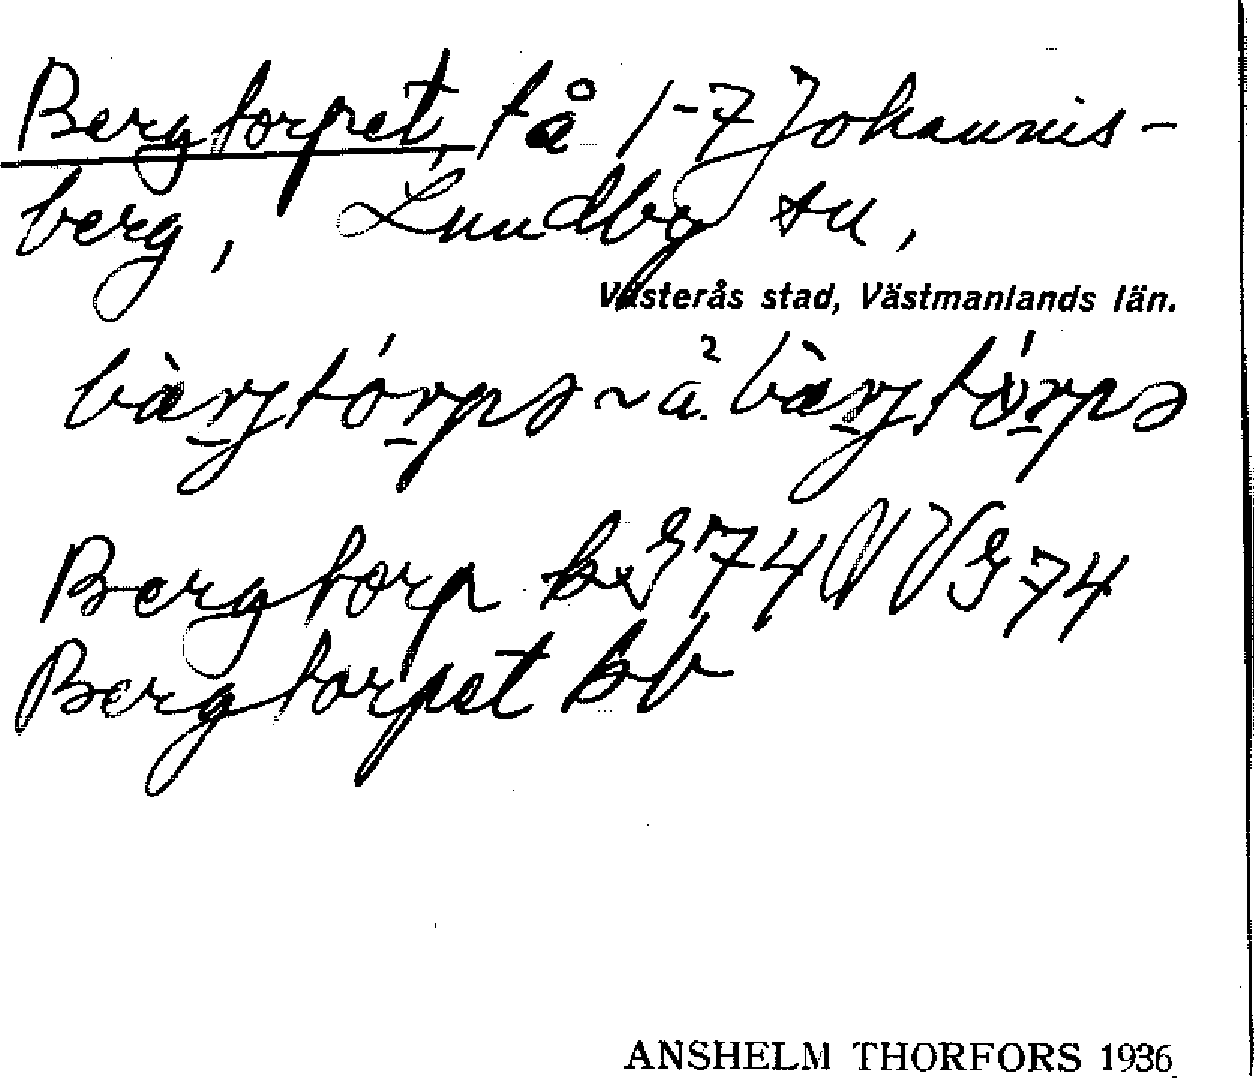 Bergtorpet, få 1-7 Johannis-
berg, Lundby sn,
Västerås stad, Västmanlands län.
bàrjtórpə ~ a.² bàrjtórpə
Bergtorp k G 74 NV G 74
Bergtorpet bb
ANSHELM THORFORS 1936